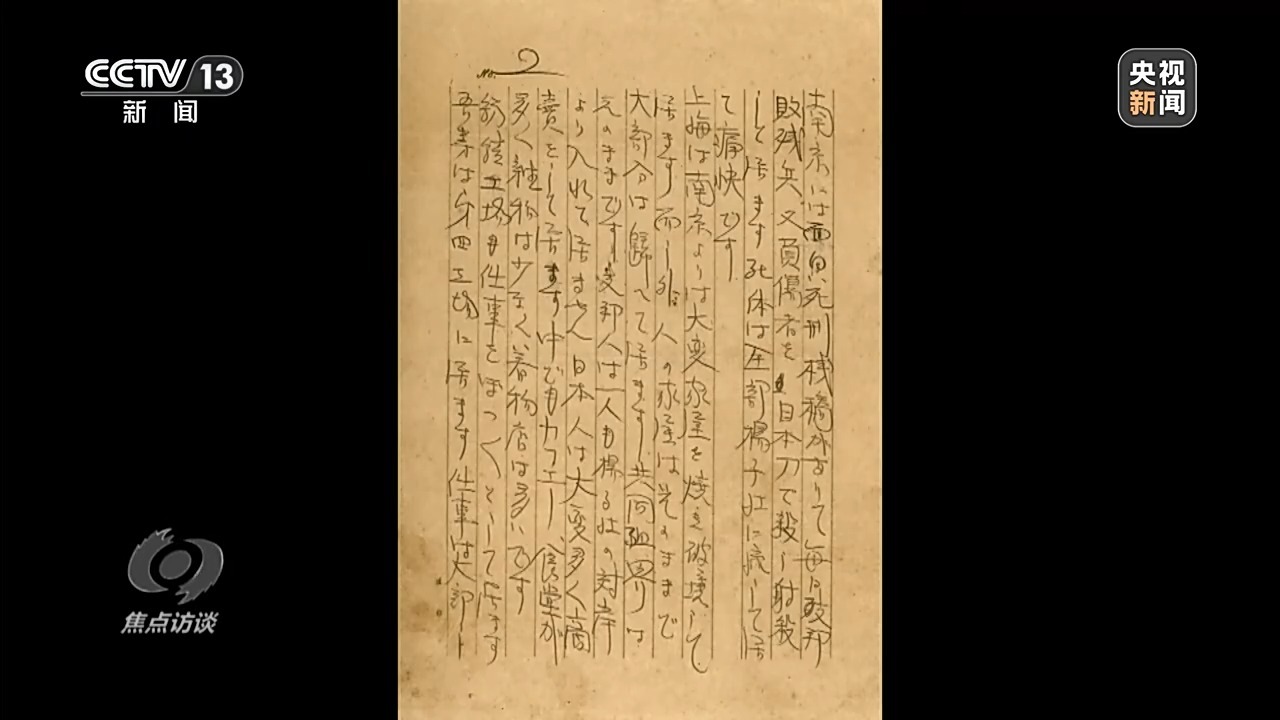 CCTV 13
新闻
央视
新闻
No. 2
南京には面白い死刑桟橋がありて毎日支那
敗残兵又負傷者を日本刀で殺し射殺
して居ます死体は全部楊子江に流して居
て痛快です
上海は南京よりは大変家屋を焼き破壊して
居ます而し外人の家屋は其のままで
大部分は歸へて居ます共同租界は
元のままです支那人は一人も楊子江の対岸
より入れて居ません日本人は大変多く商
賣をして居ます中でもカフエー食堂が
多く物は少なく着物店は多いです
紡績工場も仕事をぼつ〱として居ます
吾等は第四工場に居ます仕事は大部
焦点访谈